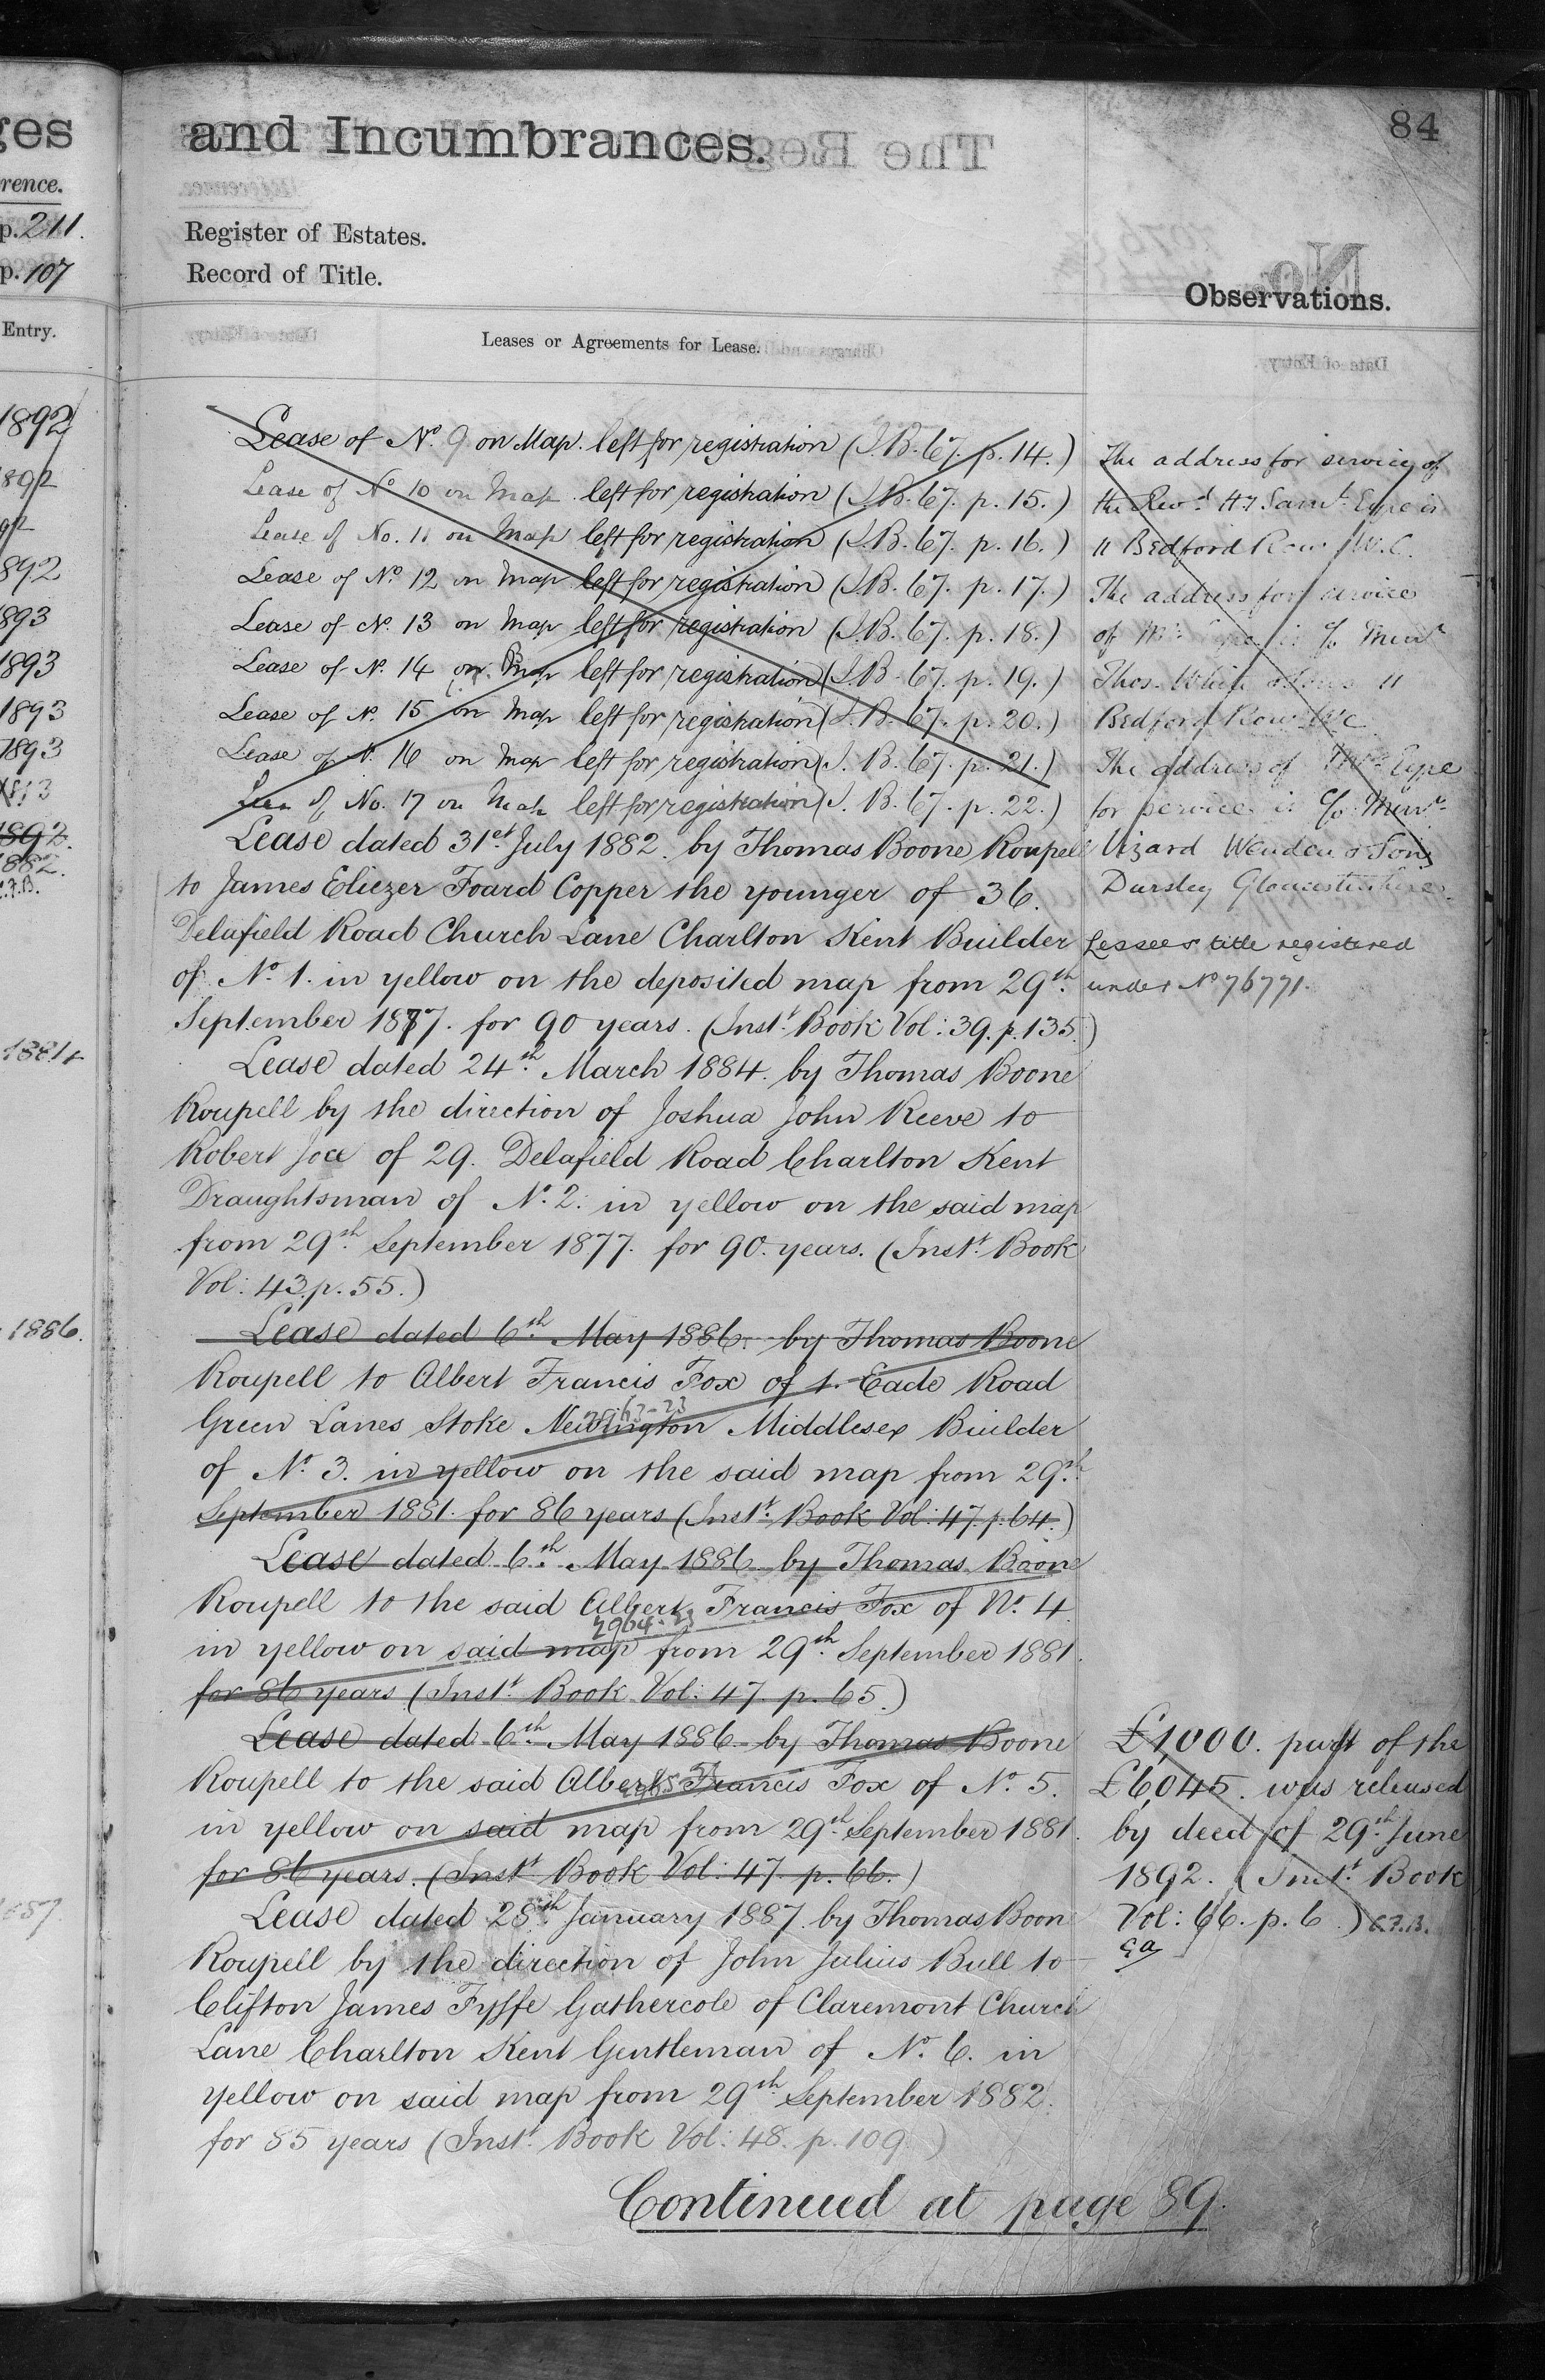 ges
rence.
p. 211.
p. 107
Entry.
1892
1892
92
892
893
1893
1893
1893
1892.
1882.
1884
1886.
84
and Incumbrances.
Register of Estates.
Record of Title.
Observations.
Leases or Agreements for Lease.
Lease of No. 9 on Map. left for registration (I.B. 67. p. 14.)
Lease of No. 10 on Map left for registration (I.B. 67. p. 15.)
Lease of No. 11 on Map left for registration (I.B. 67. p. 16.)
Lease of No. 12 on Map left for registration (I.B. 67. p. 17.)
Lease of No. 13 on Map left for registration (I.B. 67. p. 18.)
Lease of No. 14 on Map left for registration (I.B. 67. p. 19.)
Lease of No. 15 on Map left for registration (I.B. 67. p. 20.)
Lease of No. 16 on Map left for registration (I.B. 67. p. 21.)
Lease of No. 17 on Map left for registration (I.B. 67. p. 22.)
Lease dated 31st July 1882. by Thomas Boone Roupell
to James Eliezer Foard Copper the younger of 36.
Delafield Road Church Lane Charlton Kent Builder
of No. 1. in yellow on the deposited map from 29th
September 1877. for 90 years. (Inst. Book Vol: 39. p. 135.)
Lease dated 24th March 1884. by Thomas Boone
Roupell by the direction of Joshua John Reeve to
Robert of 29. Delafield Road Charlton Kent
Draughtsman of No. 2. in yellow on the said map
from 29th September 1877. for 90. years. (Inst. Book
Vol: 43. p. 55.)
Lease dated 6th May 1886. by Thomas Boone
Roupell to Albert Francis Fox of 1. Eade Road
Green Lanes Stoke Newington Middlesex Builder
of No. 3. in yellow on the said map from 29th
September 1881. for 86 years (Inst. Book Vol: 47. p. 64.)
Lease dated 6th May 1886 by Thomas Boone
Roupell to the said Albert Francis Fox of No. 4
2964-23
in yellow on said map from 29th September 1881.
for 86 years (Inst. Book Vol: 47. p. 65.)
Lease dated 6th May 1886. by Thomas Boone
Roupell to the said Albert Francis Fox of No. 5.
in yellow on said map from 29th September 1881.
for 86 years. (Inst. Book Vol: 47. p. 66.)
Lease dated 28th January 1887. by Thomas Boon
Roupell by the direction of John Julius Bull to
Clifton James Fyffe Gathercole of Claremont Church
Lane Charlton Kent Gentleman of No. 6. in
yellow on said map from 29th September 1882.
for 85 years (Inst. Book Vol: 48. p. 109.)
Continued at page 89.
The address for service of
the Revd. Hy Saml. Eyre is
11 Bedford Row W.C.
The address for service
of Eyre is c/o Messrs
Thos. White & Sons 11
Bedford Row WC
The address of Eyre
for service is c/o Messrs
Vizard Wenden & Son
Dursley Gloucestershire
Lessees title registered
under No 76771.
£1,000. part of the
£6,045. was released
by deed of 29th June
1892. (Inst. Book
Vol: 66. p. 6.) C.F.B.